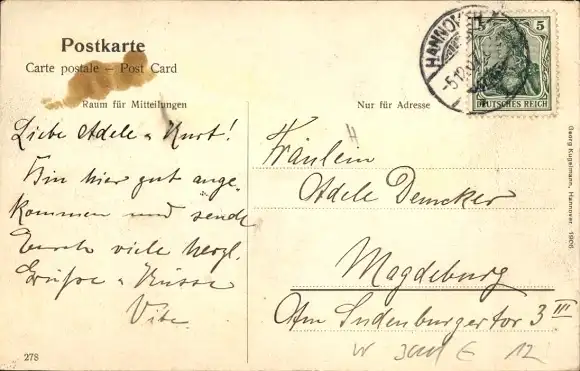 Postkarte
Carte postale – Post Card
Raum für Mitteilungen
Nur für Adresse
Liebe Adele u Kurt!
Bin hier gut ange-
kommen und sende
Euch viele herzl.
Grüße u Küsse
Fräulein
Adele Demcker
Magdeburg
Am Sudenburgertor 3 III
HANNOVER
5
5
DEUTSCHES REICH
Georg Kugelmann, Hannover. 1906.
278
12